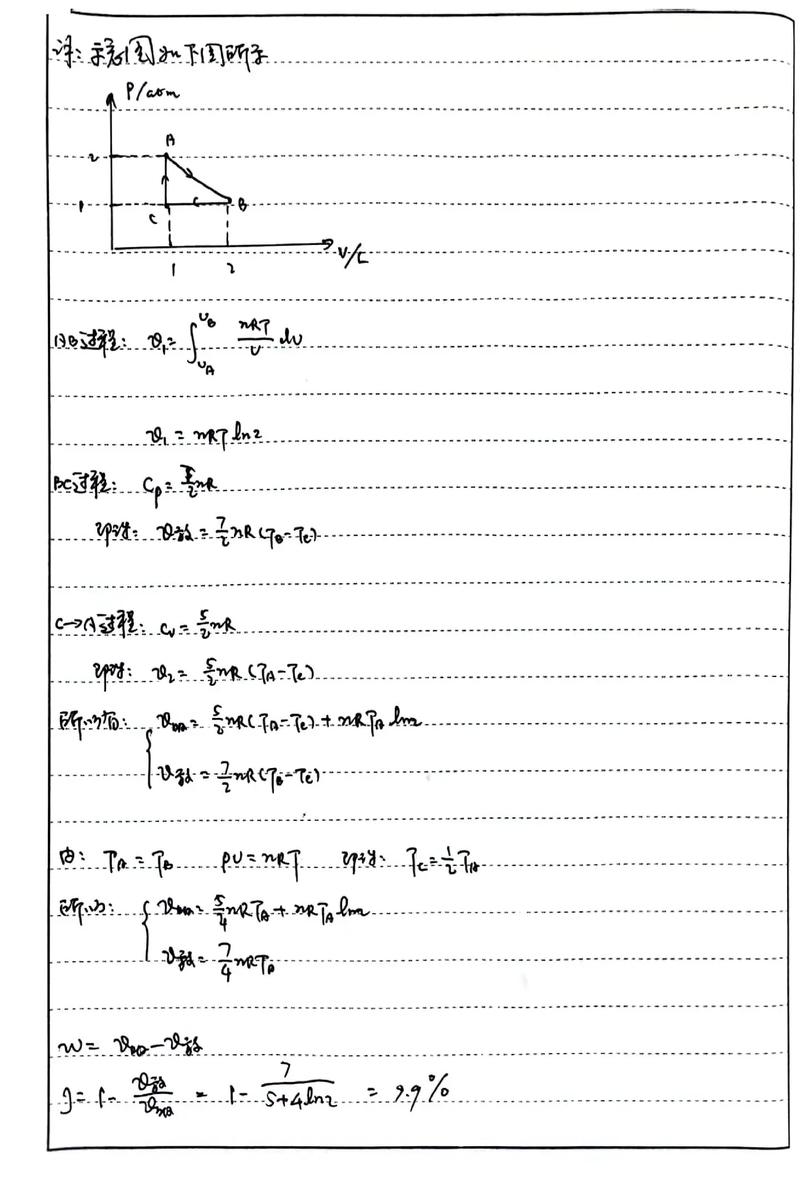 详:示意图如下图所示
P/atm
A
2
1
C
B
V/L
1 2
AB过程: Q₁= ∫_{V_A}^{V_B} nRT/V dV
Q₁ = nRT ln2
BC过程: Cp= 7/2 nR
Q放 = 7/2 nR(T_B-T_C)
C→A过程: Cv= 5/2 nR
Q₂= 5/2 nR (T_A-T_C)
所以有: Q吸= 5/2 nR(T_A-T_C)+nRT_A ln2
Q放 = 7/2 nR(T_B-T_C)
由: T_A=T_B PV=nRT T_C=1/2 T_A
所以: Q吸= 5/4 nRT_A+nRT_A ln2
Q放= 7/4 nRT_A
W= Q吸-Q放
η= 1- Q放/Q吸 = 1- 7/(5+4ln2) = 9.9%